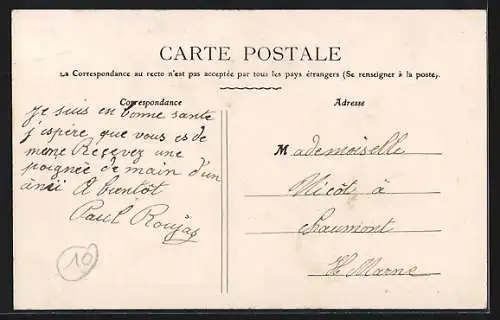 CARTE POSTALE
La Correspondance au recto n'est pas acceptée par tous les pays étrangers (Se renseigner à la poste).
Correspondance
Adresse
Je suis en bonne santé
j'espère que vous es de
meme Recevez une
poignée de main d'un
ami A bientôt
Paul Roujas
10
Mademoiselle
Nicôt à
Chaumont
Hte Marne